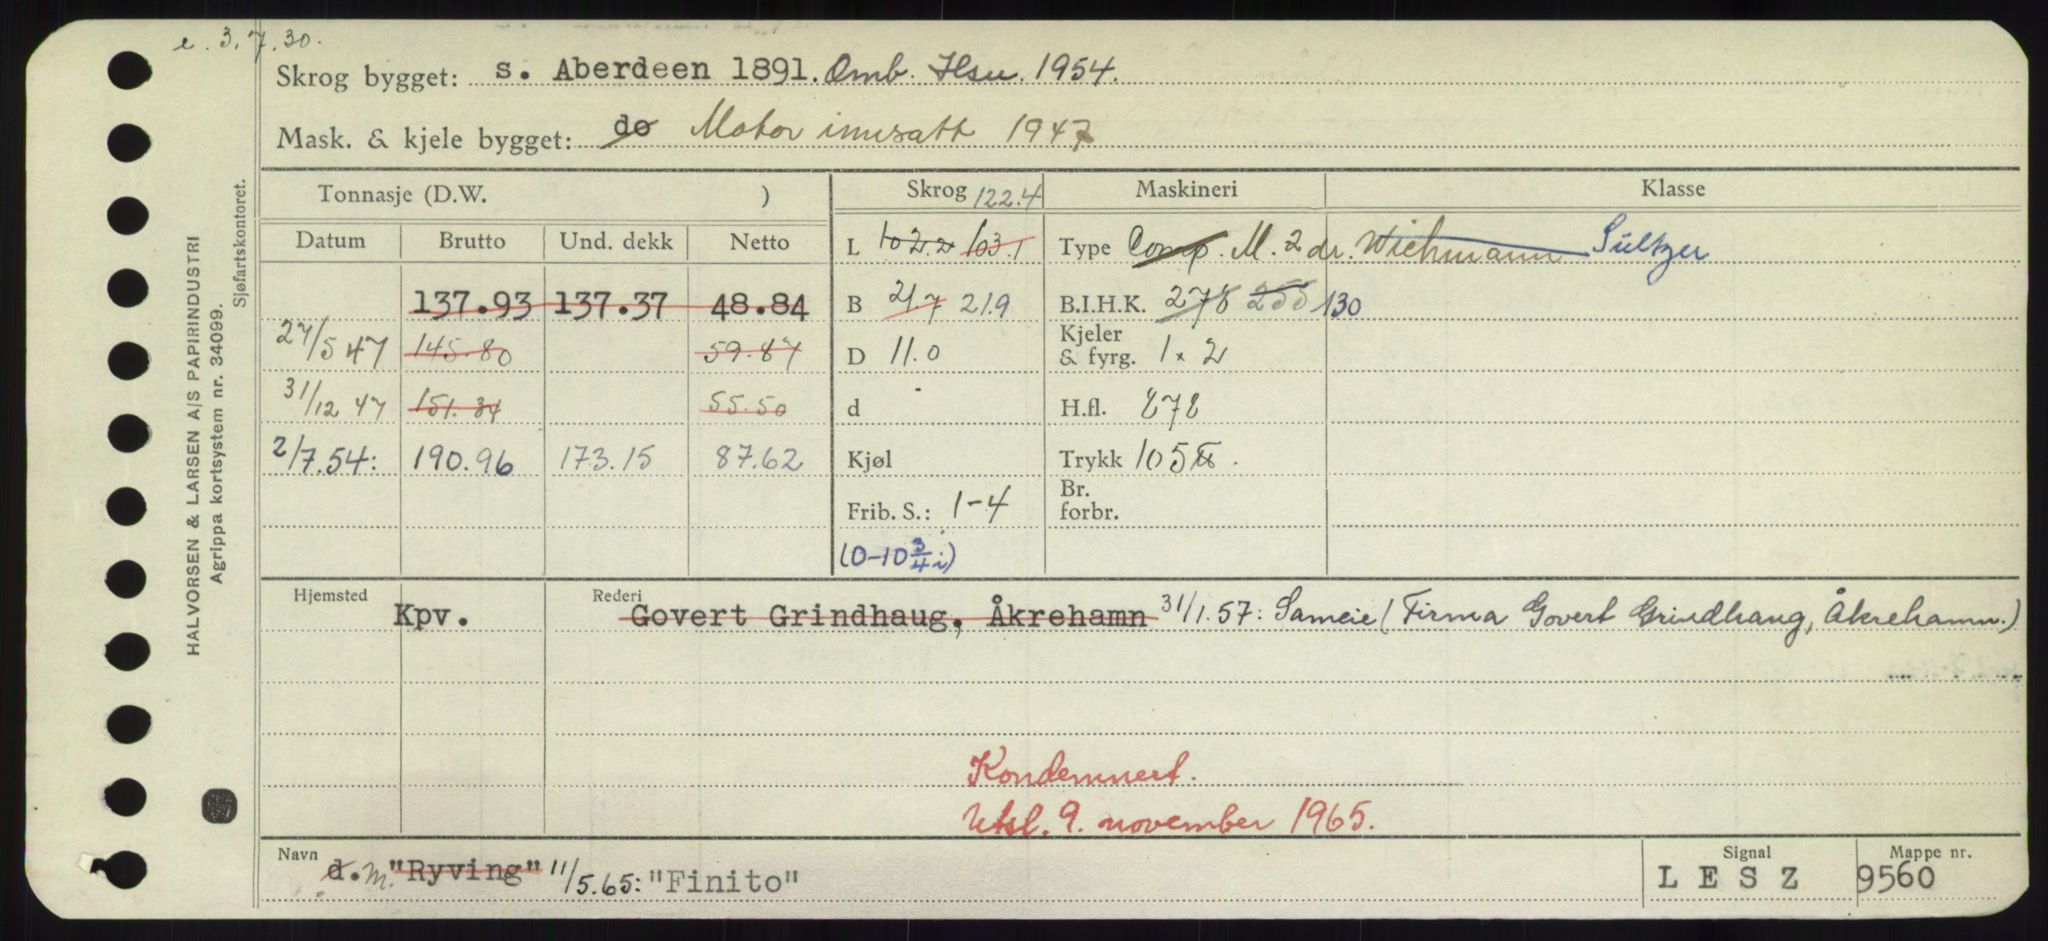 e. 3.7.30.
Skrog bygget: s. Aberdeen 1891. Omb. Hsu. 1954.
Mask. & kjele bygget: do Motor innsatt 1947
Tonnasje (D.W. ) Skrog 122.4 Maskineri Klasse
Datum Brutto Und. dekk Netto L 102.2 103.1 Type Comp. M. 2 dr. Wichmann Sültzer
137.93 137.37 48.84 B 21.7 21.9 B.I.H.K. 278 255 130
27/5 47 145.80 59.87 D 11.0 Kjeler & fyrg. 1 x 2
31/12 47 151.34 55.50 d H.fl. 878
2/7.54: 190.96 173.15 87.62 Kjøl Trykk 105 ℔.
Frib. S.: 1-4 Br. forbr.
(0-10 3/4 i)
Hjemsted Kpv. Rederi Govert Grindhaug, Åkrehamn 31/1.57: Sameie (Firma Govert Grindhaug, Åkrehamn.)
Kondemnert.
Utsl. 9. november 1965.
Navn d. M. "Ryving" 11/5.65: "Finito" Signal LESZ Mappe nr. 9560
HALVORSEN & LARSEN A/S PAPIRINDUSTRI
Agrippa kortsystem nr. 34099.
Sjøfartskontoret.